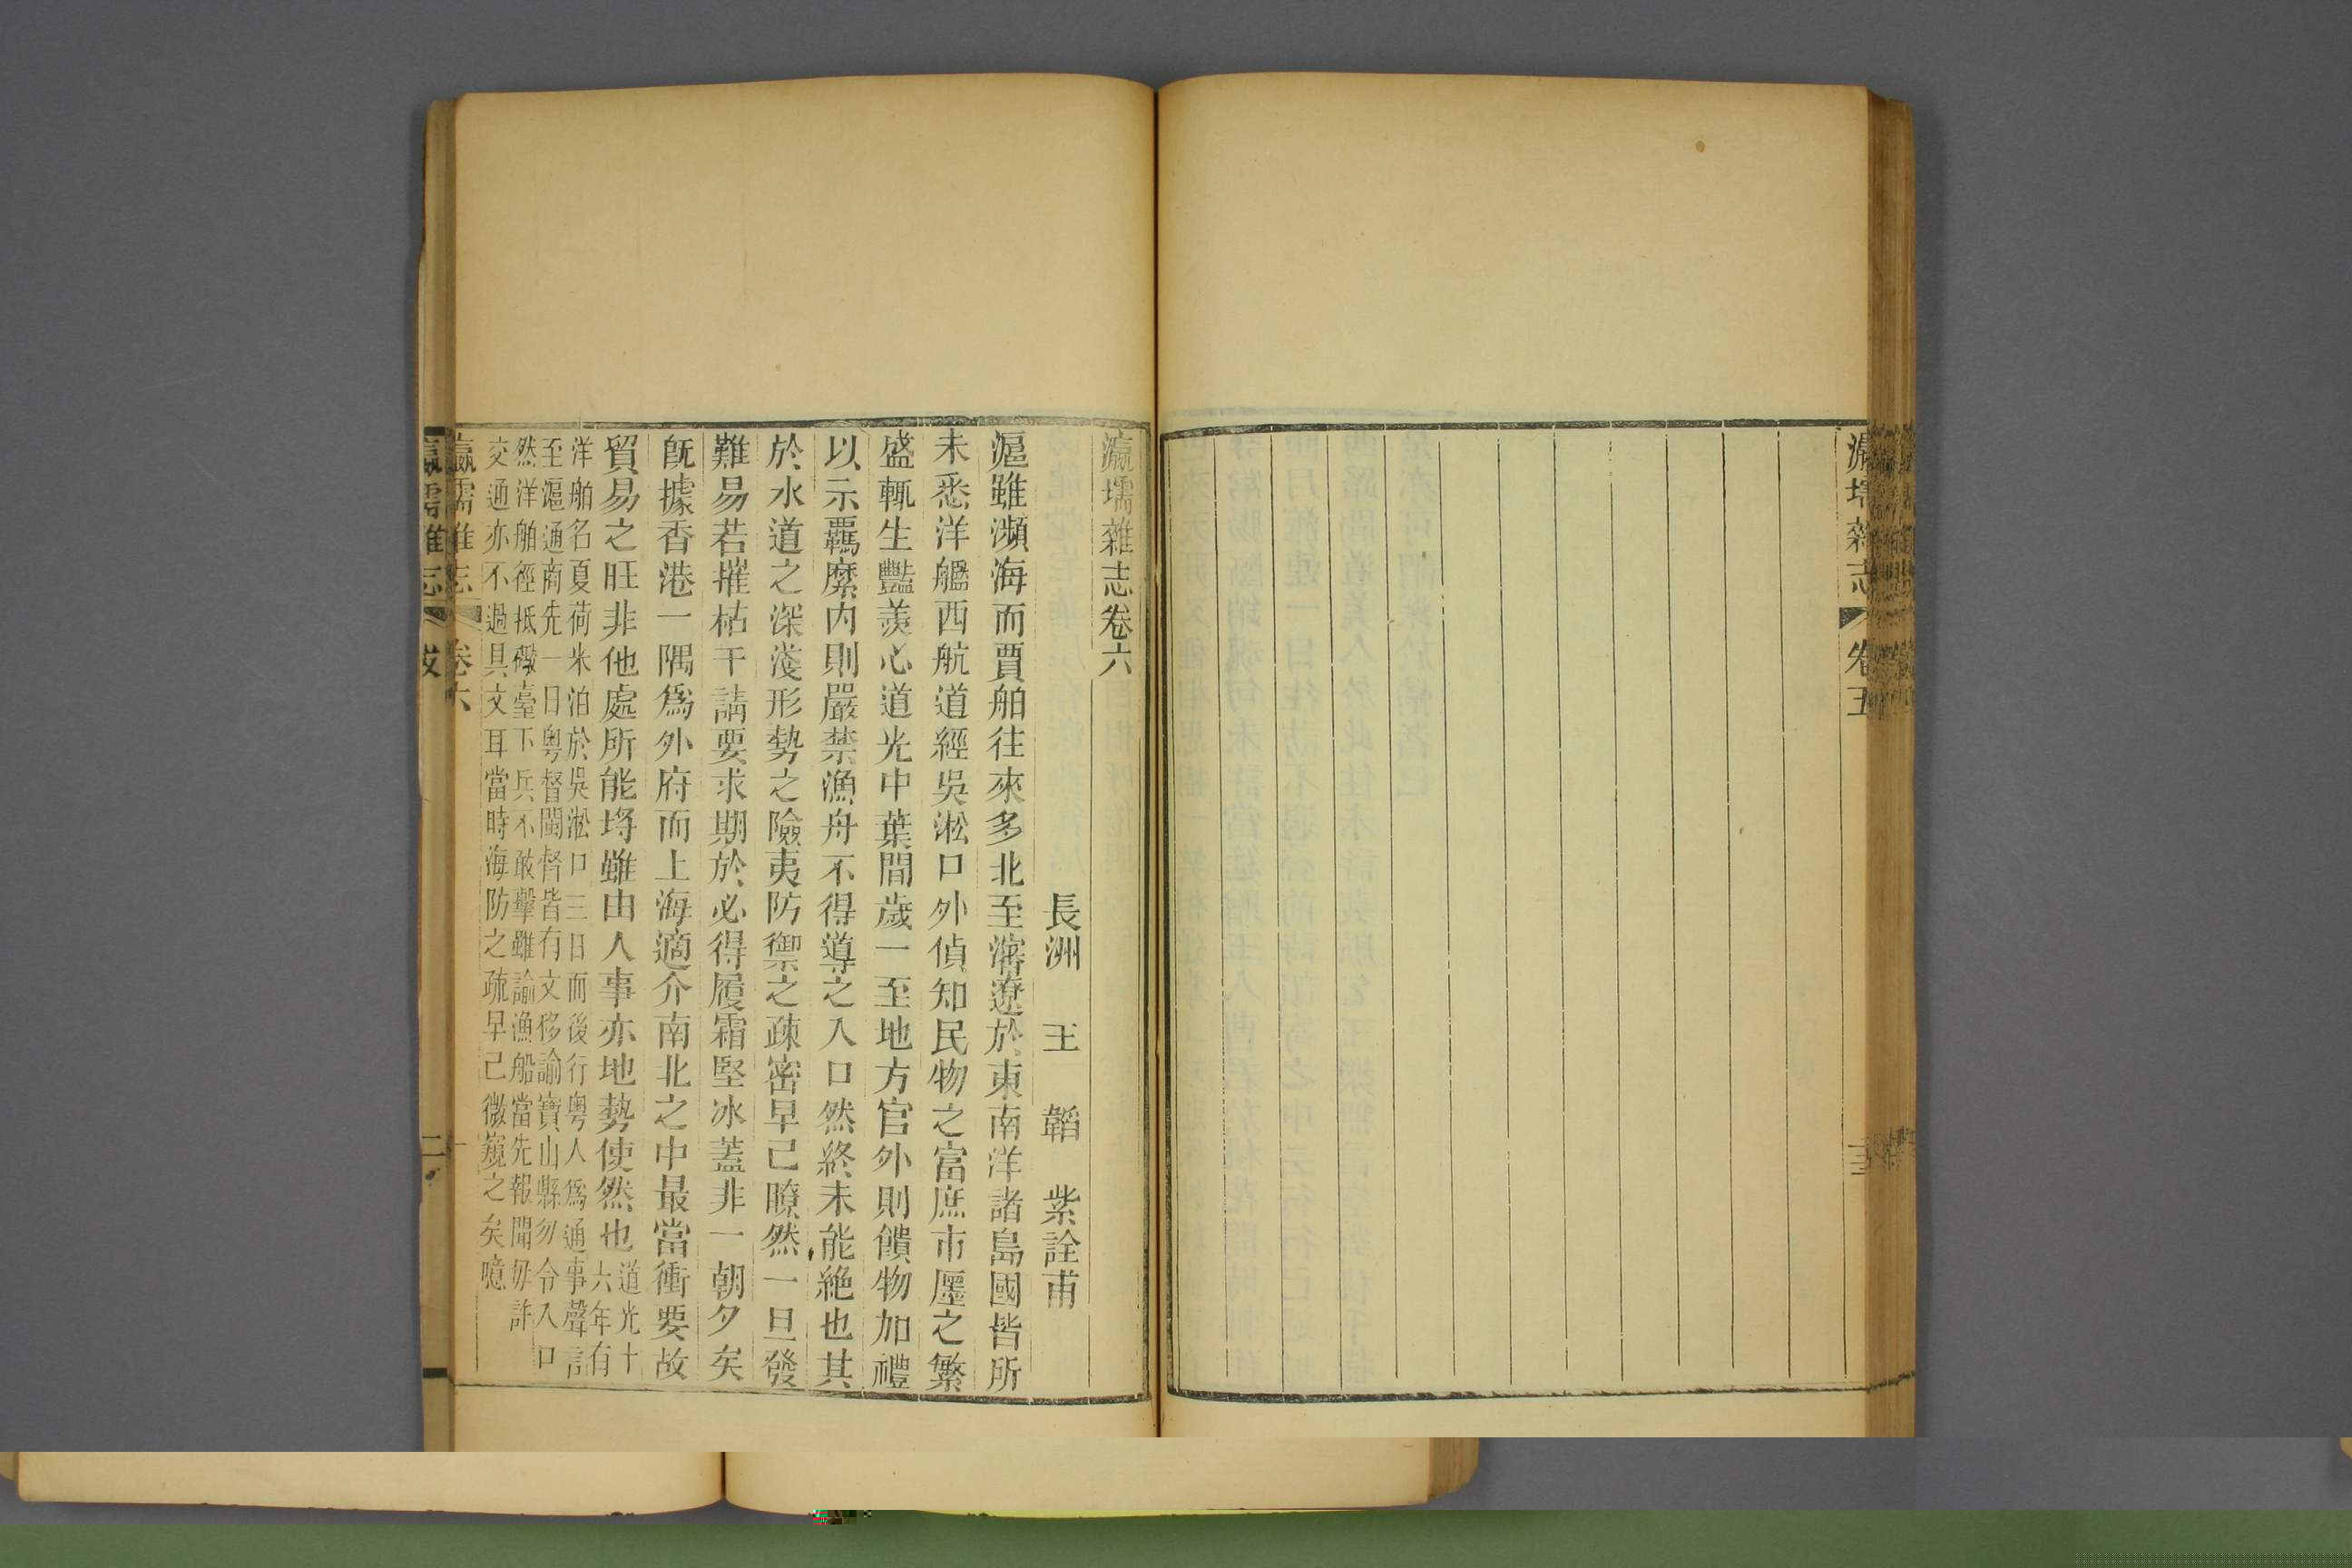 瀛壖雜志
卷五
瀛壖雜志卷六
長洲 王 韜 紫詮甫
滬雖瀕海而賈舶往來多北至瀋遼於東南洋諸島國皆所
未悉洋艦西航道經吳淞口外偵知民物之富庶市廛之繁
盛輒生豔羨心道光中葉間歲一至地方官外則饋物加禮
以示羈縻內則嚴禁漁舟不得導之入口然終未能絕也其
於水道之深淺形勢之險夷防禦之疎密早已瞭然一旦發
難易若摧枯干請要求期於必得履霜堅冰蓋非一朝夕矣
旣據香港一隅爲外府而上海適介南北之中最當衝要故
貿易之旺非他處所能埒雖由人事亦地勢使然也道光十
六年有
洋舶名夏荷米泊於吳淞口三日而後行粵人爲通事聲言
至滬通商先一日粵督閩督皆有文移諭寶山縣勿令入口
然洋舶徑抵礮臺下兵不敢擊雖諭漁船當先報聞毋許
交通亦不過具文耳當時海防之疏早已微窺之矣噫
卷六
一
二